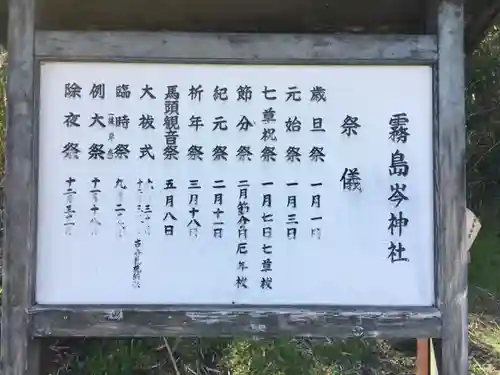 霧島岑神社
祭儀
歳旦祭 一月一日
元始祭 一月三日
七草祝祭 一月七日七草祓
節分祭 二月節分日厄年祓
紀元祭 二月十一日
祈年祭 三月十八日
馬頭観音祭 五月八日
大祓式
臨時祭
例大祭
除夜祭 十二月三十一日